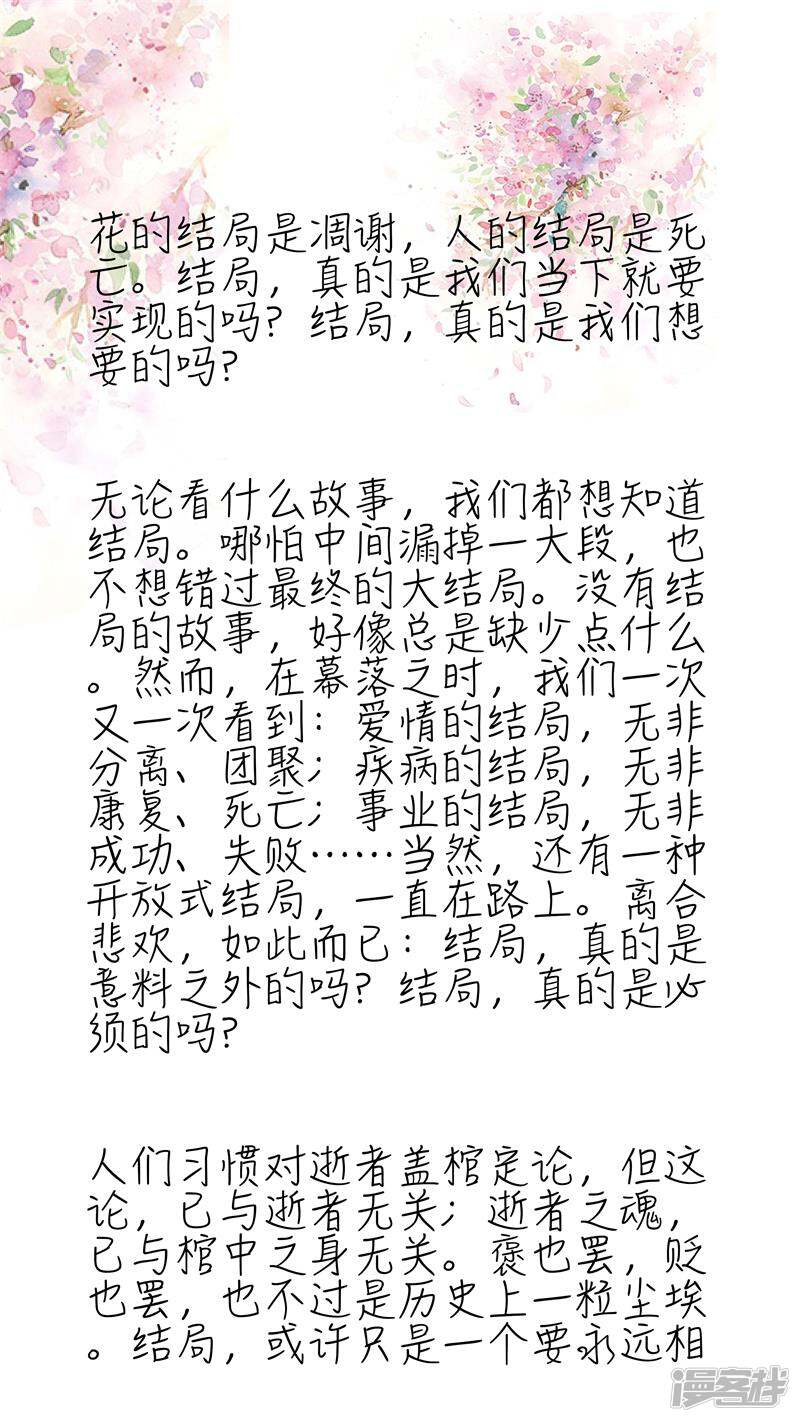 花的结局是凋谢，人的结局是死
亡。结局，真的是我们当下就要
实现的吗？结局，真的是我们想
要的吗？
无论看什么故事，我们都想知道
结局。哪怕中间漏掉一大段，也
不想错过最终的大结局。没有结
局的故事，好像总是缺少点什么
。然而，在幕落之时，我们一次
又一次看到：爱情的结局，无非
分离、团聚；疾病的结局，无非
康复、死亡；事业的结局，无非
成功、失败……当然，还有一种
开放式结局，一直在路上。离合
悲欢，如此而已：结局，真的是
意料之外的吗？结局，真的是必
须的吗？
人们习惯对逝者盖棺定论，但这
论，已与逝者无关；逝者之魂，
已与棺中之身无关。褒也罢，贬
也罢，也不过是历史上一粒尘埃
。结局，或许只是一个要永远相
漫客栈